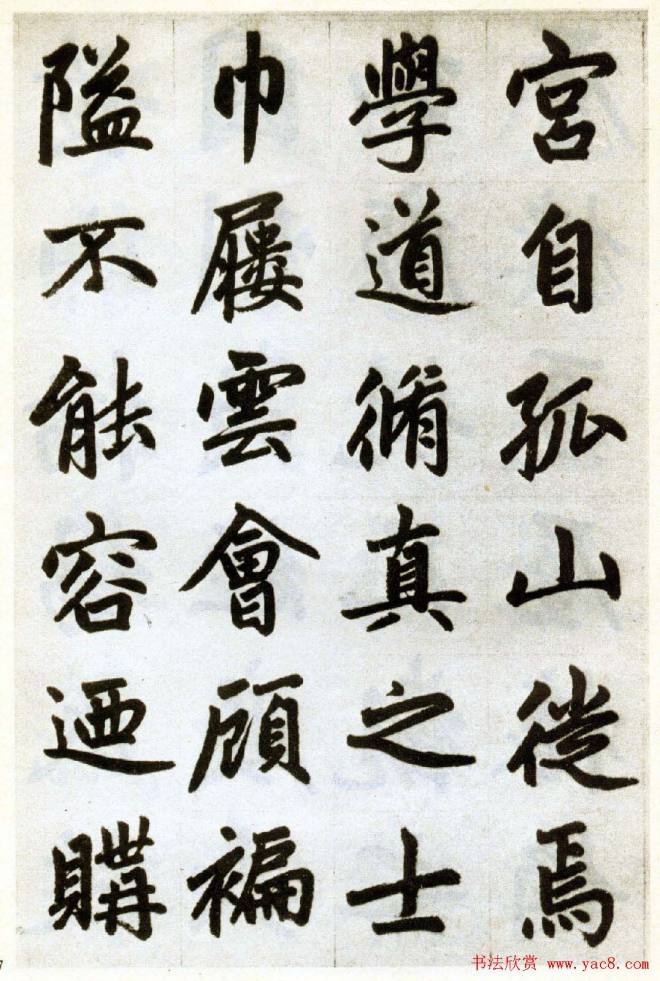 宮自孤山徙焉
學道脩真之士
巾屨雲會顧褊
隘不能容迺購
书法欣赏 www.yac8.com
7